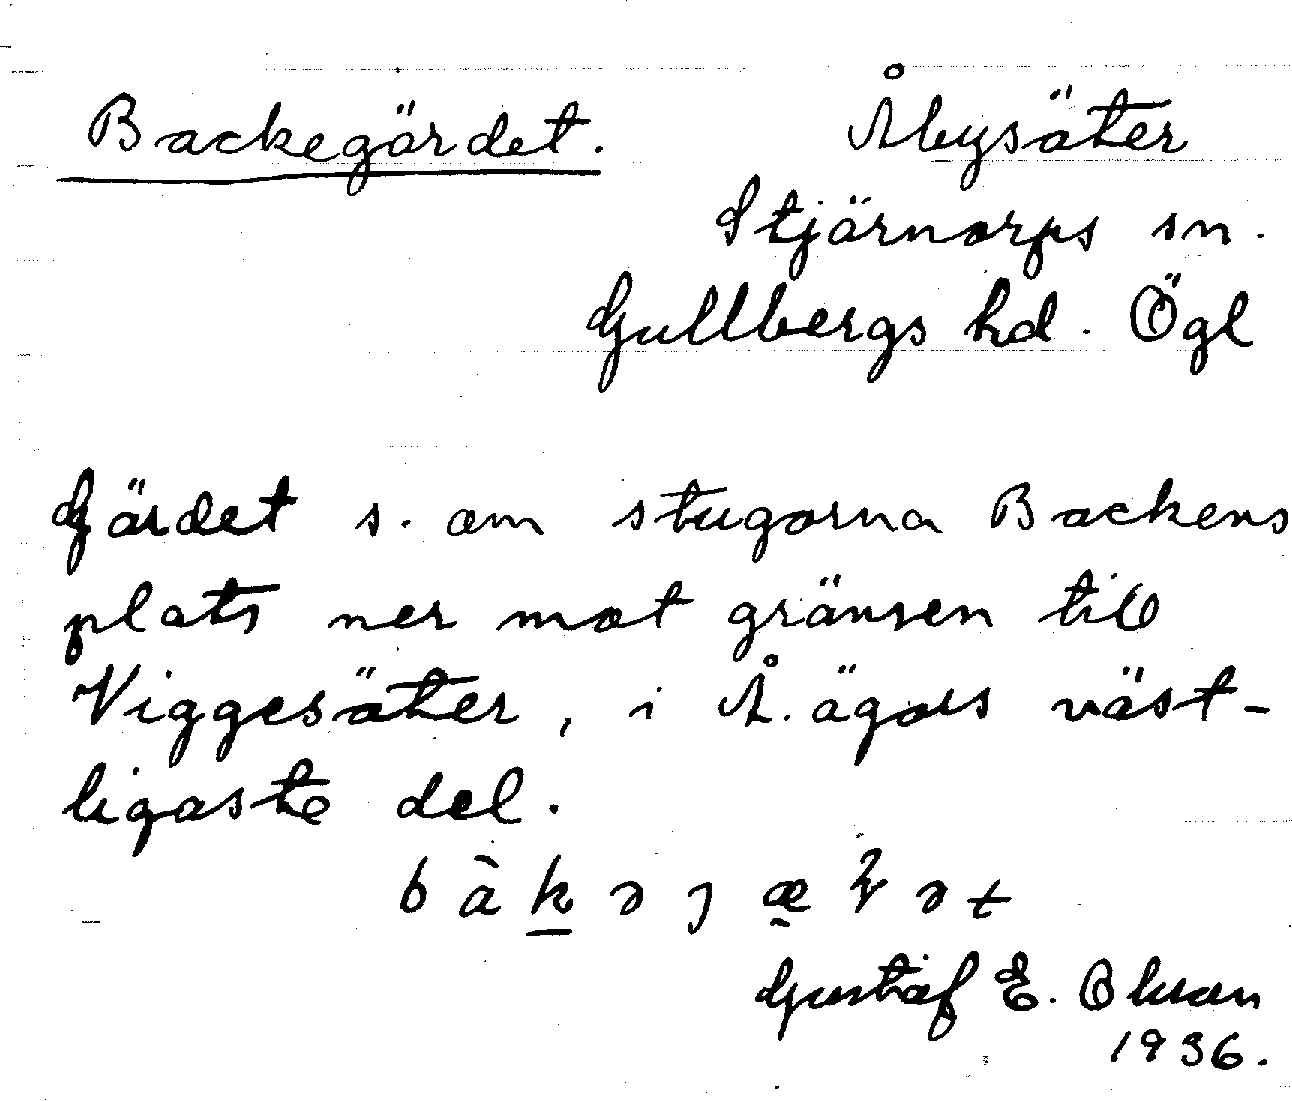 Backegärdet.
Åbysäter
Stjärnorps sn.
Gullbergs hd. Ögl
Gärdet s. om stugorna Backens
plats ner mot gränsen till
Viggesäter, i Å. ägors väst-
ligaste del.
Gustaf E. Olsson
1936.